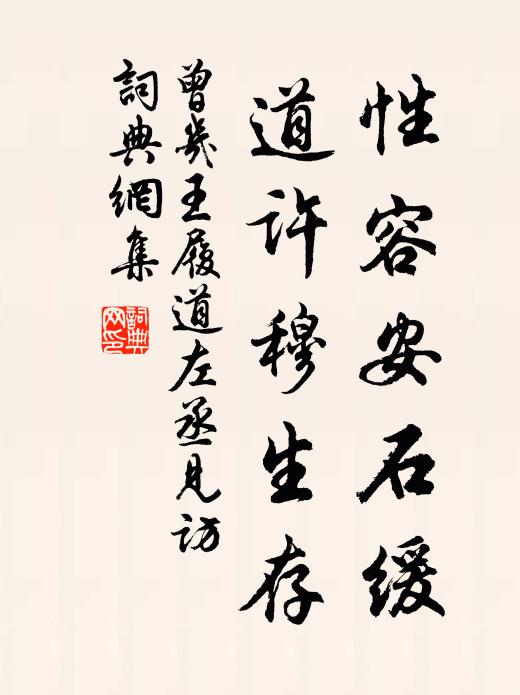 性容安石緩
道許穆生存
曾幾王履道左丞見訪
詞典網集
詞典网印